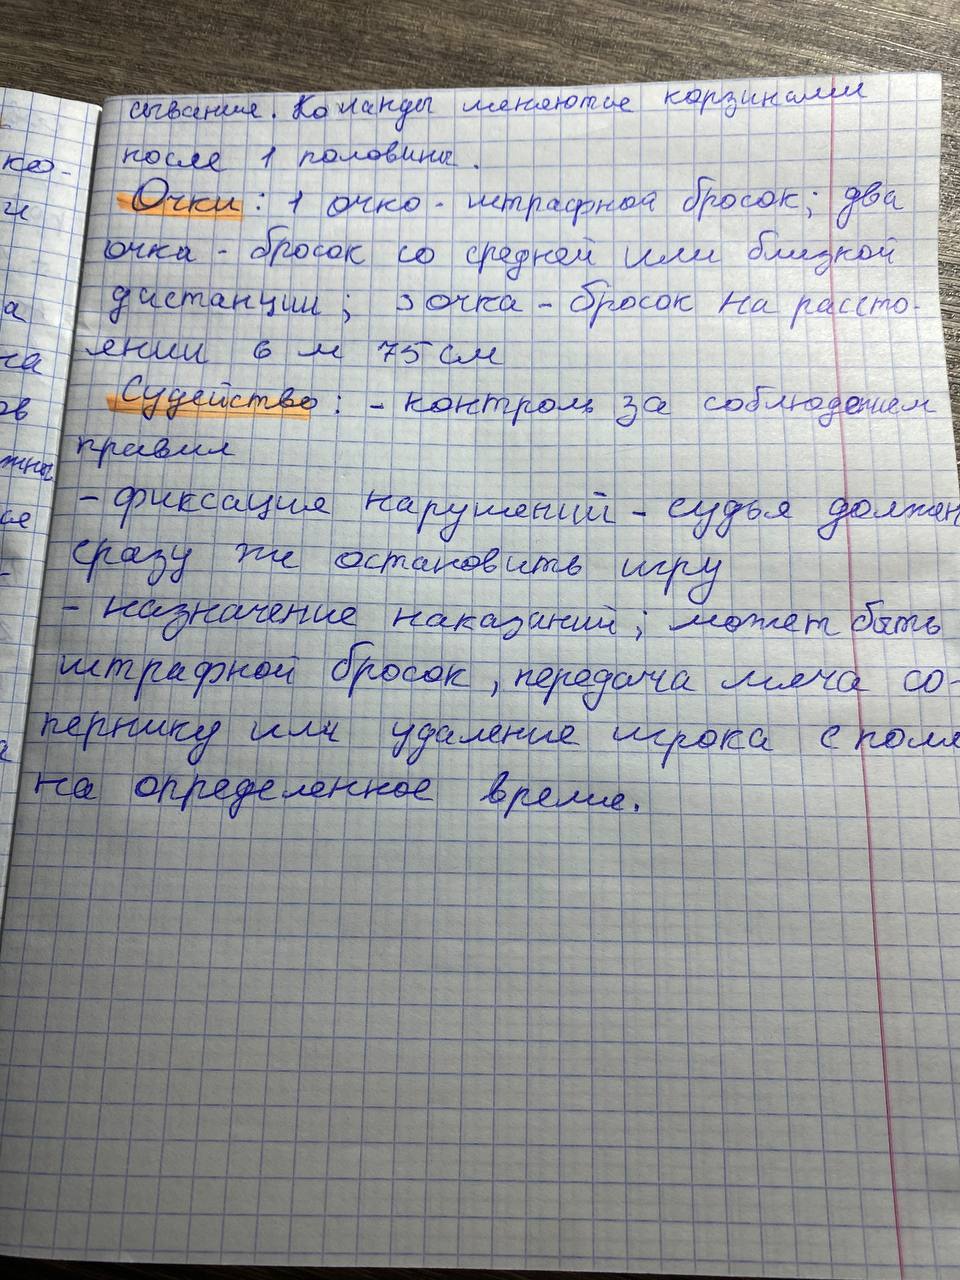 сывание. Команды меняются корзинами
после 1 половины.
Очки: 1 очко - штрафной бросок; два
очка - бросок со средней или близкой
дистанции; 3 очка - бросок на рассто-
янии 6 м 75 см
Судейство: - контроль за соблюдением
правил
- фиксация нарушений - судья должен
сразу же остановить игру
- назначение наказаний; может быть
штрафной бросок, передача мяча со-
пернику или удаление игрока с поля
на определенное время.